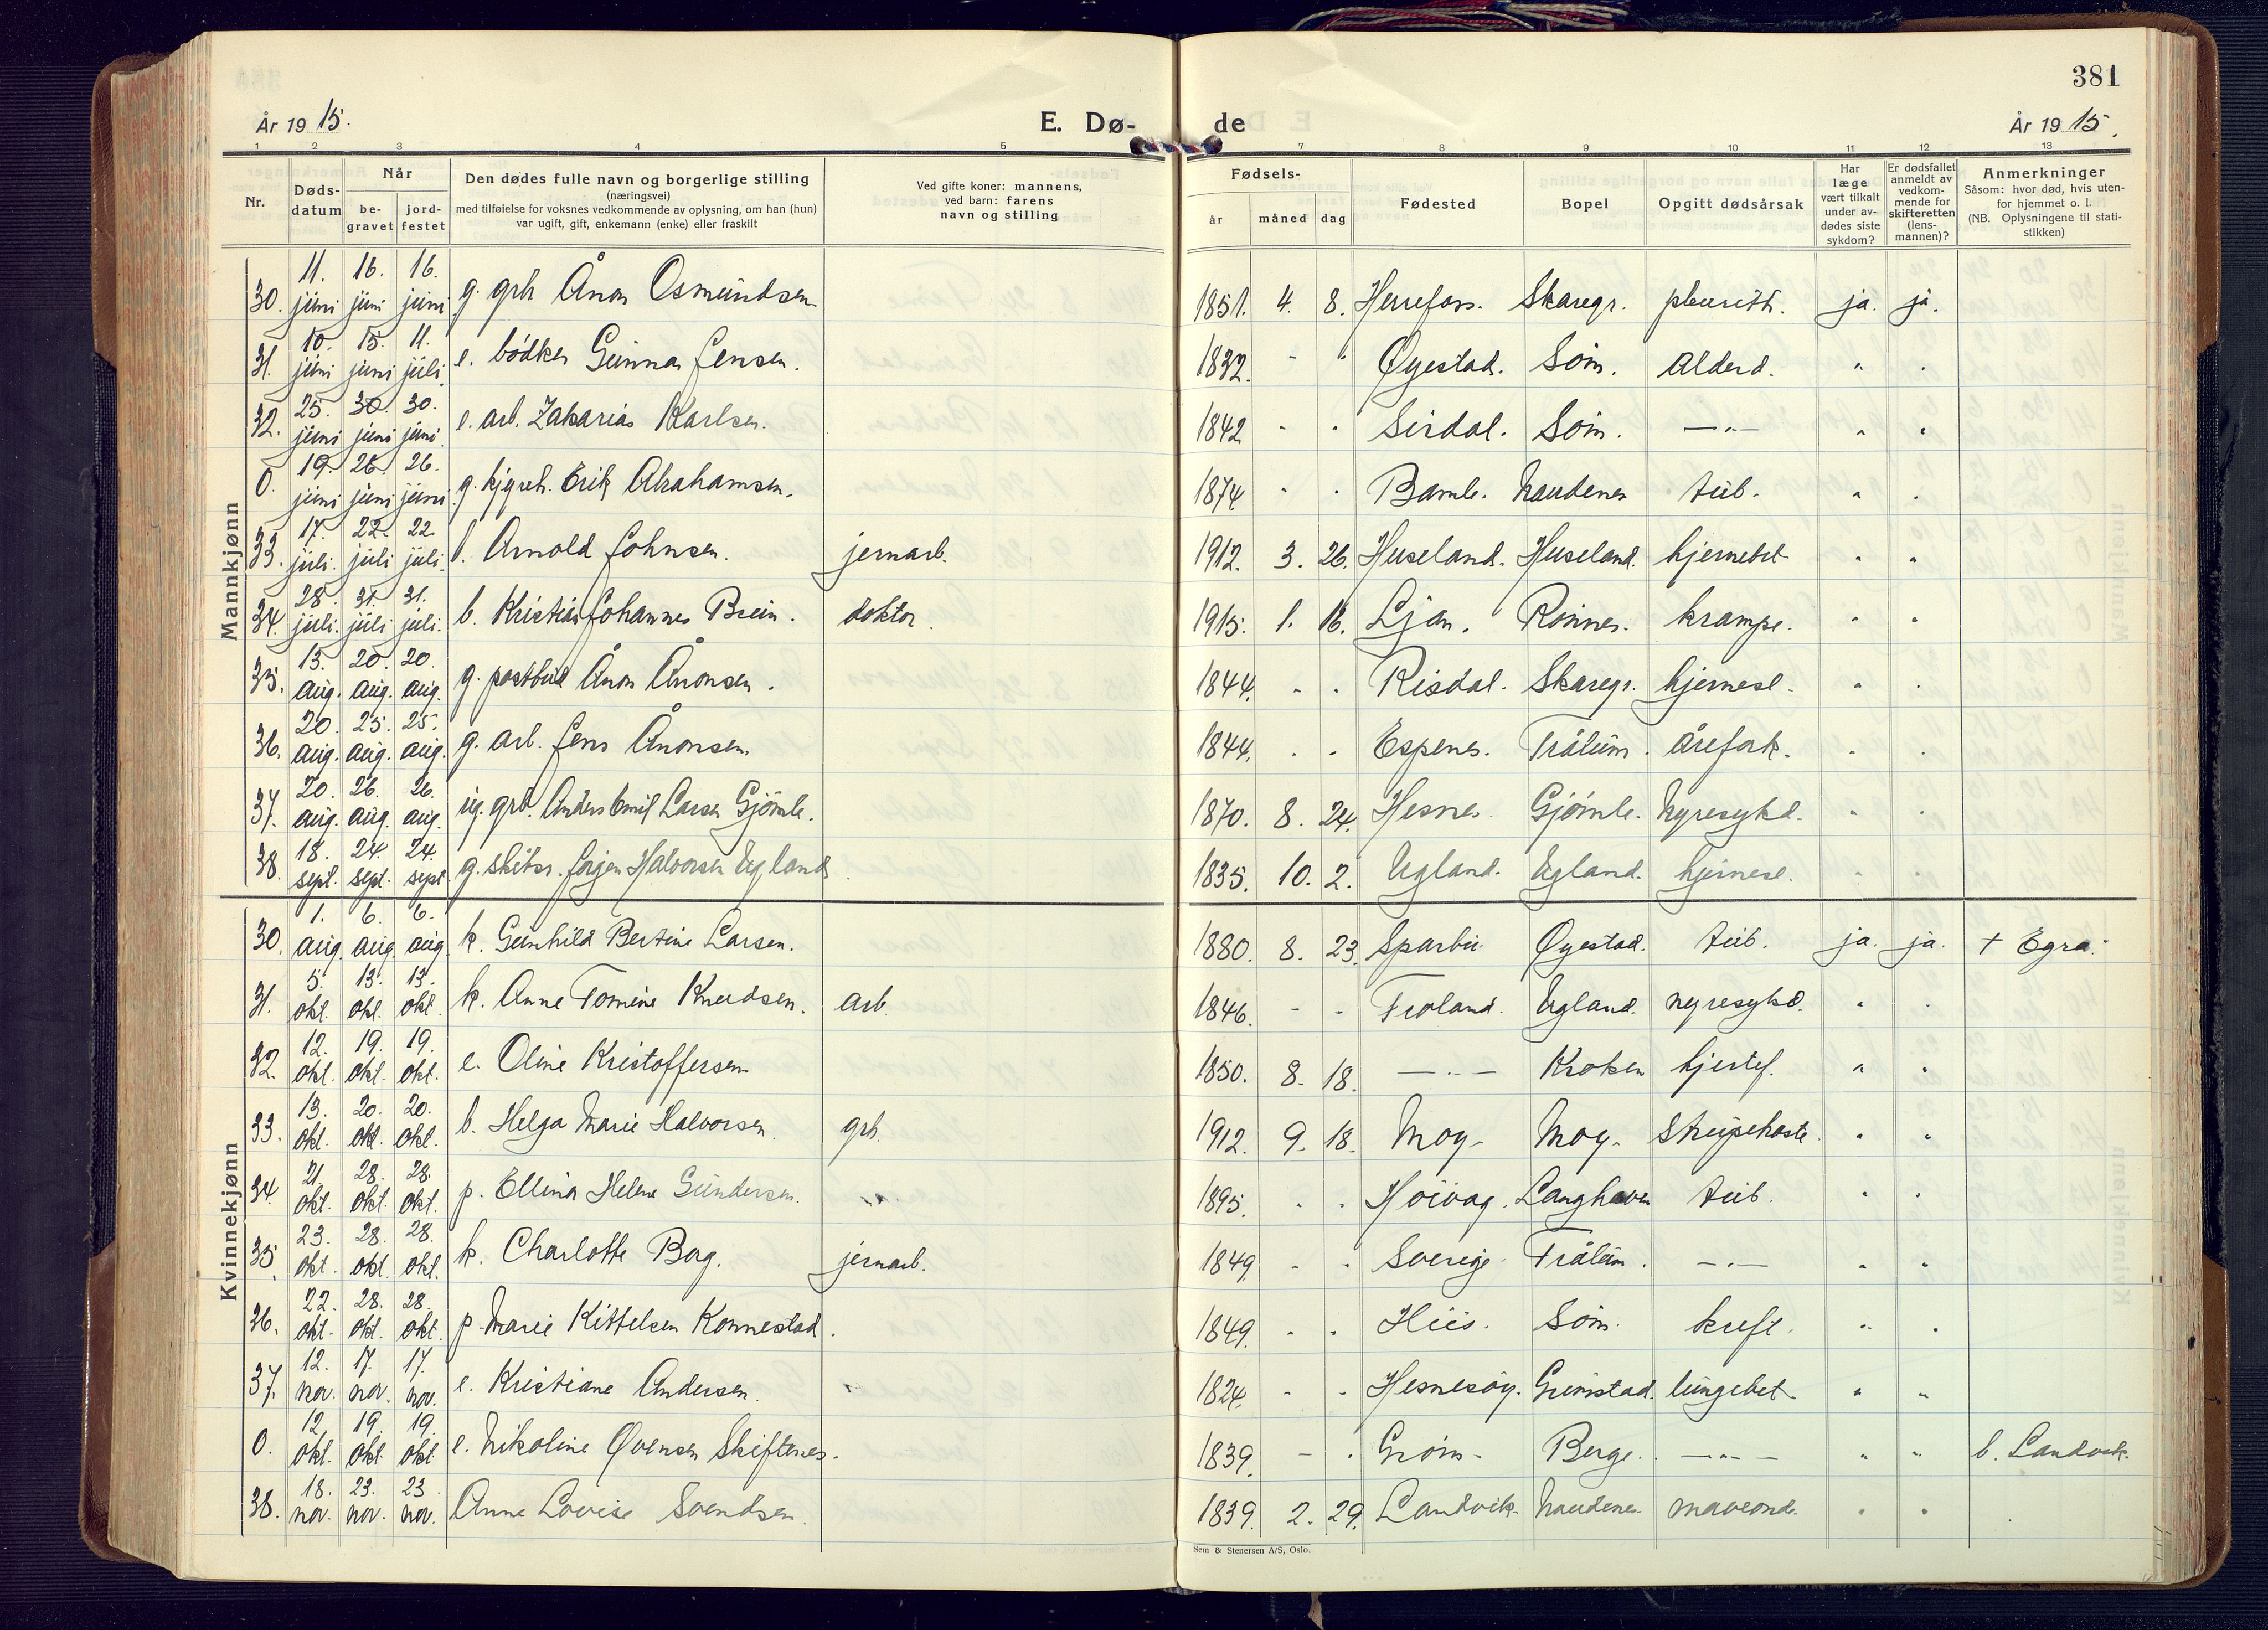 381
År 1915.
E. Dø-
de
År 1915.
1 2 3 4 5 7 8 9 10 11 12 13
Nr.
Døds-
datum
Når
be-
gravet
jord-
festet
Den dødes fulle navn og borgerlige stilling
(næringsvei)
med tilføielse for voksnes vedkommende av oplysning, om han (hun)
var ugift, gift, enkemann (enke) eller fraskilt
Ved gifte koner: mannens,
ved barn: farens
navn og stilling
Fødsels-
år måned dag
Fødested
Bopel
Opgitt dødsårsak
Har
læge
vært tilkalt
under av-
dødes siste
sykdom?
Er dødsfallet
anmeldt av
vedkom-
mende for
skifteretten
(lens-
mannen)?
Anmerkninger
Såsom: hvor død, hvis uten-
for hjemmet o. l.
(NB. Oplysningene til stati-
stikken)
Mannkjønn
30. 11. juni 16. juni 16. juni g. grb Ånon Osmundsen 1851. 4. 8. Herrefoss. Skaregr. pleuritt. ja. ja.
31. 10. juni 15. juni 11. juli e. bødker Gunnar Jensen. 1832. - " Øyestad. Søm. alderd. " "
32. 25. juni 30. juni 30. juni e. arb. Zakarias Karlsen. 1842 - " Sirdal. Søm. — " — " "
0. 19. juni 26. juni 26. juni g. Erik Abrahamsen. 1874 " " Bamle. Naudenes tub. " "
33. 17. juli. 22. juli 22. juli. b. Arnold Johnsen. jernarb. 1912. 3. 26. Huseland. Huseland. hjernebet " "
34. 28. juli. 31. juli 31. juli. b. Kristian Johannes Brein. doktor 1915. 1. 16. Ljan. Rønnes. krampe. " "
35. 13. aug. 20. aug. 20. aug. g. postbud Ånon Ånonsen. 1844. " " Risdal. Skaregr. hjernesl. " "
36. 20. aug. 25. aug. 25. aug. g. arb. Jens Ånonsen. 1844. " " Espenes. Trålum. årefork. " "
37. 20. aug. 26. aug. 26. aug. ug. grb. Anders Emil Larsen Gjømle. 1870. 8. 24. Hesnes. Gjømle. Nyresykd. " "
38. 18. sept. 24. sept. 24. sept g. skibsr. Jørgen Halvorsen Ugland 1835. 10. 2. Ugland. Ugland. hjernesl. " "
Kvinnekjønn
30. 1. aug. 6. aug. 6. aug k. Gunhild Bertine Larsen. 1880. 8. 23. Sparbu Øyestad. tub. ja. ja. + Egra.
31. 5. okt. 13. okt. 13. okt. k. Anne Tomine Knudsen. arb. 1846. - - Froland. Ugland. nyresykd. " "
32. 12. okt. 19. okt. 19. okt. e. Oline Kristoffersen 1850. 8. 18. — " — Kroken hjertef. " "
33. 13. okt. 20. okt. 20. okt. b. Helga Marie Halvorsen. grb. 1912. 9. 18. Moy. Moy. Strupehoste. " "
34. 21. okt. 28. okt. 28. okt. p. Ellina Helene Gundersen. 1895. " " Høivåg. Langhaven tub. " "
35. 23. okt. 28. okt. 28. okt. k. Charlotte Borg. jernarb. 1849 - " Sverige. Trålum. — " — " "
36. 22. okt. 28. okt. 28. okt. p. Marie Kittelsen Konnestad. 1849. " " Hiis. Søm. kreft. " "
37. 12. nov. 17. nov. 17. nov. e. Kristiane Andersen. 1824. - " Hesnesøy. Grimstad. lungebet. " "
0. 12. okt. 19. okt. 19. okt e. Nikoline Ovensen Skiftenes. 1839. - " Grøm. Berge. — " — " " b. Landvik.
38. 18. nov. 23. nov. 23. nov. Anne Lovise Svendsen. 1839. 2. 29. Landvik. Naudenes. maveonde. " "
Sem & Stenersen A/S, Oslo.